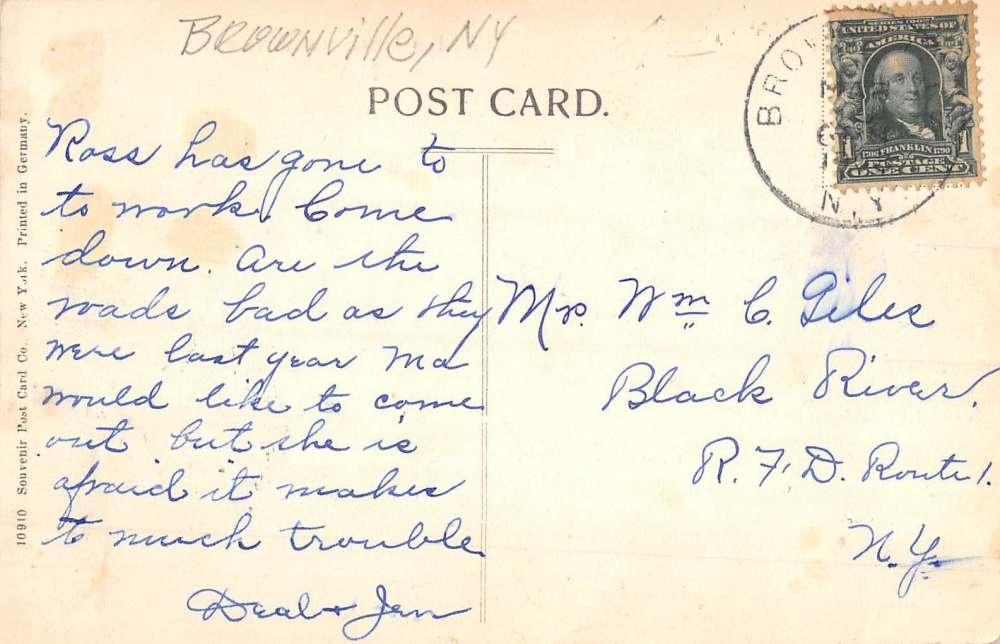 Brownville, NY
POST CARD.
Ross has gone to
to work. Come
down. are the
roads bad as they
were last year Ma
would like to come
out but she is
afraid it makes
to much trouble
Deal & Jen
Mrs. Wm C. Giles
Black River.
R. F. D. Route 1.
N. Y.
10910 Souvenir Post Card Co., New York. Printed in Germany.
SERIES 1902
UNITED STATES OF
AMERICA
1706 FRANKLIN 1790
POSTAGE
1 ONE CENT 1
N.Y.